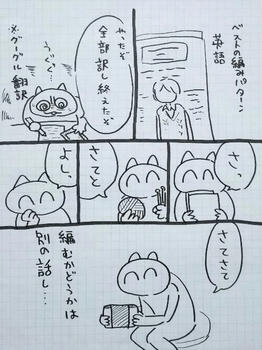 ベストの編みパターン
英語
やったぞ
全部訳し終えたぞ
うぐぐ…
※グーグル翻訳
さっ
さてと
よしっ
さてさて
編むかどうかは
別の話し…